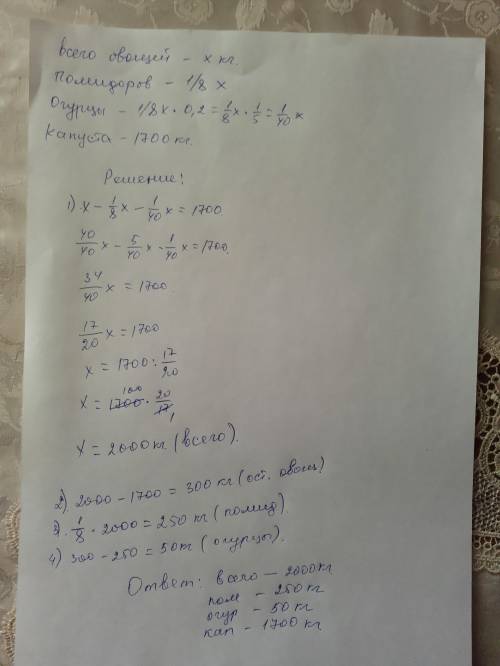 Всего овощей – x кг.
Помидоров – 1/8 x
Огурцы – 1/8x · 0,2 = 1/8 x · 1/5 = 1/40 x
Капуста – 1700 кг.
Решение:
1). x – 1/8 x – 1/40 x = 1700.
40/40 x – 5/40 x - 1/40 x = 1700.
34/40 x = 1700.
17/20 x = 1700
x = 1700 : 17/20
x = 1700 100 · 20/17 1
x = 2000 кг (всего).
2). 2000 – 1700 = 300 кг (ост. овощ)
3). 1/8 · 2000 = 250 кг (помид).
4) 300 – 250 = 50 кг (огурцы).
Ответ: всего – 2000 кг
пом – 250 кг
огур – 50 кг
кап – 1700 кг